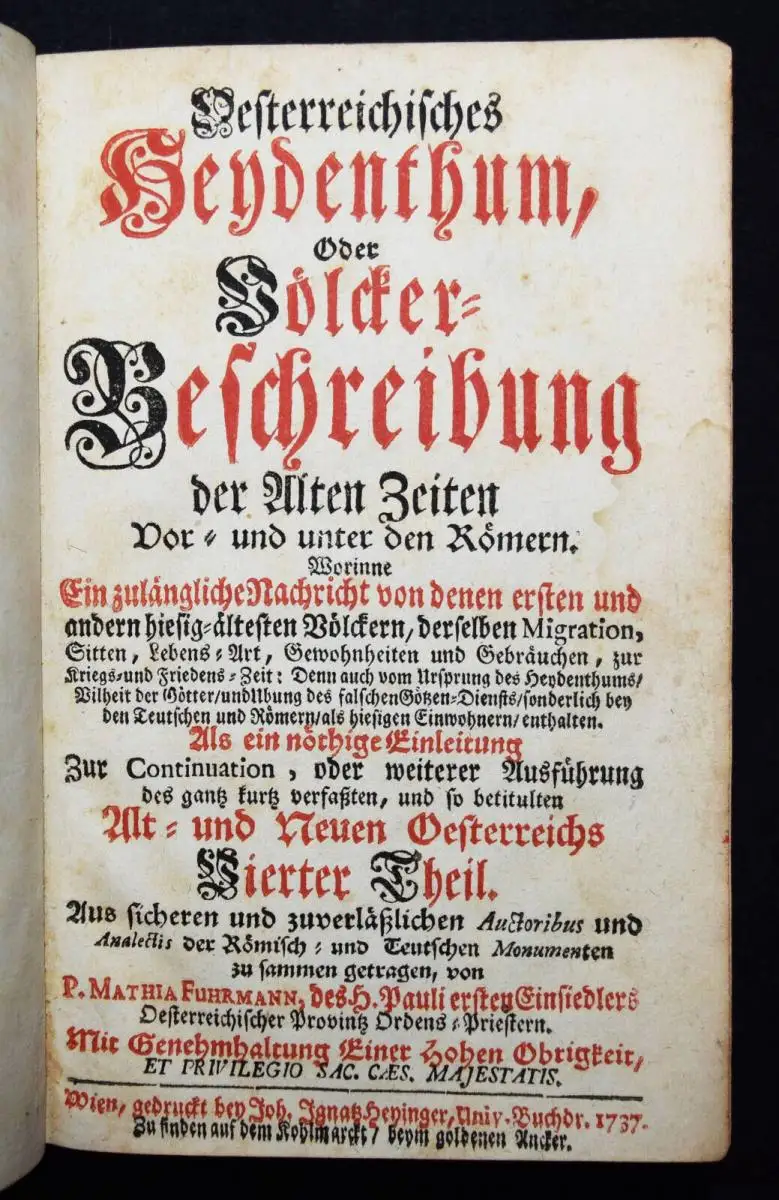 Oesterreichisches
Heydenthum,
Oder
Völcker-
Beschreibung
der Alten Zeiten
Vor- und unter den Römern.
Worinne
Ein zulängliche Nachricht von denen ersten und
andern hiesig-ältesten Völckern/ derselben Migration,
Sitten, Lebens-Art, Gewohnheiten und Gebräuchen, zur
Kriegs-und Friedens-Zeit: Denn auch vom Ursprung des Heydenthums/
Vilheit der Götter/ und Ubung des falschen Götzen-Diensts/ sonderlich bey
den Teutschen und Römern/ als hiesigen Einwohnern/ enthalten.
Als ein nöthige Einleitung
Zur Continuation, oder weiterer Ausführung
des gantz kurtz verfaßten, und so betitulten
Alt- und Neuen Oesterreichs
Vierter Theil.
Aus sicheren und zuverläßlichen Auctoribus und
Analectis der Römisch- und Teutschen Monumenten
zu sammen getragen, von
P. MATHIA FUHRMANN, des H. Pauli ersten Einsiedlers
Oesterreichischer Provintz Ordens-Priestern.
Mit Genehmhaltung Einer Hohen Obrigkeit,
ET PRIVILEGIO SAC. CÆS. MAJESTATIS.
Wien, gedruckt bey Joh. Ignatz Heyinger, Univ. Buchdr. 1737.
Zu finden auf dem Kohlmarckt/ beym goldenen Ancker.